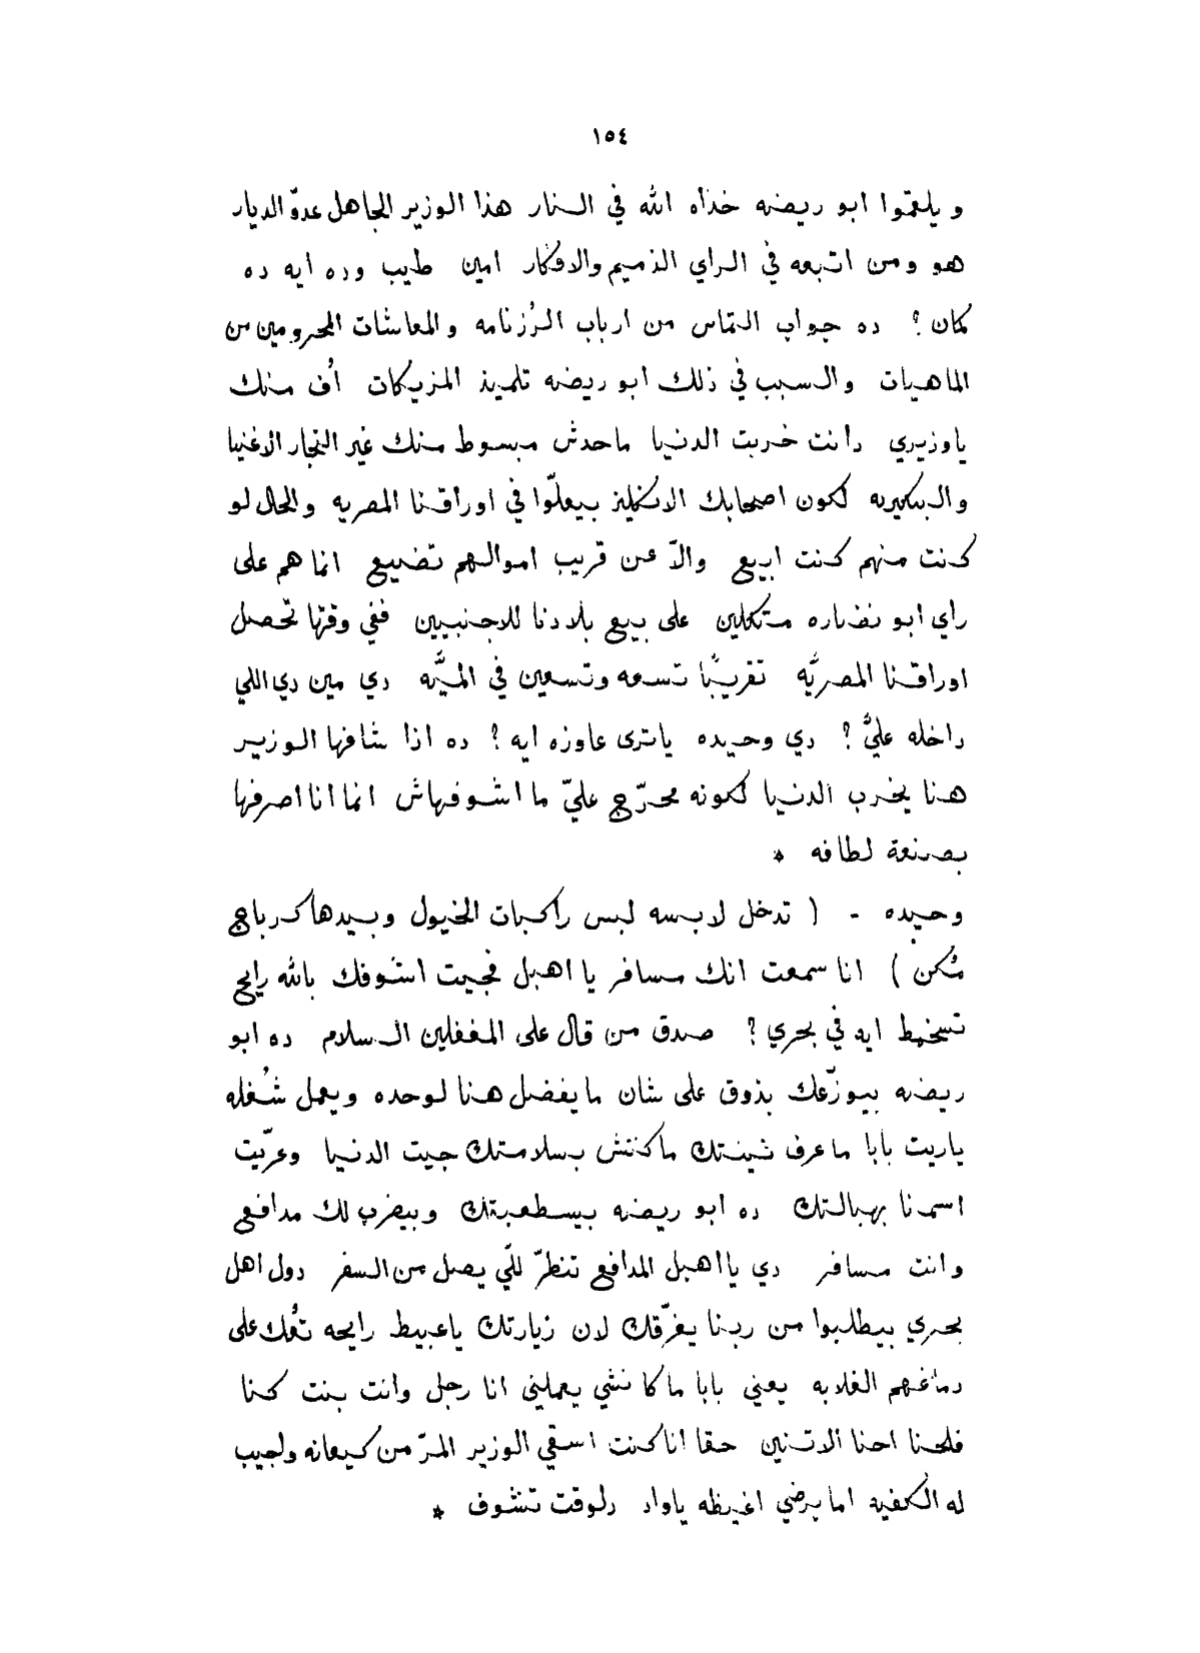 ١٥٤
ويلعنوا ابو ريضه خذاه الله في النار هذا الوزير الجاهل عدوّ الديار
هو ومن اتبعه في الراي الذميم والافكار امين طيب وده ايه ده
كمان؟ ده جواب التماس من ارباب الرُزنامه والمعاشات المحرومين من
الماهيات والسبب في ذلك ابو ريضه تلميذ المزيكات أُف منك
ياوزيري دانت خربت الدنيا ماحدش مبسوط منك غير التجار الاغنيا
والبنكيريه لكون اصحابك الانكليز بيعلّوا في اوراقنا المصريه والحال لو
كنت منهم كنت ابيع والاّ عن قريب اموالهم تضيع انما هم على
راي ابو نضاره متكلين على بيع بلادنا للاجنبيين ففي وقتها تحصل
اوراقنا المصريَّه تقريبًا تسعه وتسعين في الميَّه دي مين دي اللي
داخله عليَّ؟ دي وحيده ياترى عاوزه ايه؟ ده اذا شافها الوزير
هنا يخرب الدنيا لكونه محرّج عليّ ما اشوفهاش انما انا اصرفها
بصنعة لطافه *
وحيده - ( تدخل لابسه لبس راكبات الخيول وبيدها كرباج
مُكن ) انا سمعت انك مسافر يا اهبل فجيت اشوفك بالله رايح
تسخبط ايه في بحري؟ صدق من قال على المغفلين السلام ده ابو
ريضه بيوزّعك بذوق على شان ما يفضل هنا لوحده ويعمل شُغله
ياريت بابا ماعرف نينتك ماكنتش بسلامتك جيت الدنيا وعرّيت
اسمنا بهبالتك ده ابو ريضه بيسطعبتك وبيضرب لك مدافع
وانت مسافر دي يا اهبل المدافع تنظرّ للّي يصل من السفر دول اهل
بحري بيطلبوا من ربنا يغرّقك لان زيارتك ياعبيط رايحه تُعك على
دماغهم الغلابه يعني بابا ما كا نشي يعملني انا رجل وانت بنت كنا
فلحنا احنا الاتنين حقا انا كنت اسقي الوزير المرّ من كيعانه ولجيب
له الكفيه اما برضي اغيظه ياواد دلوقت تشوف *